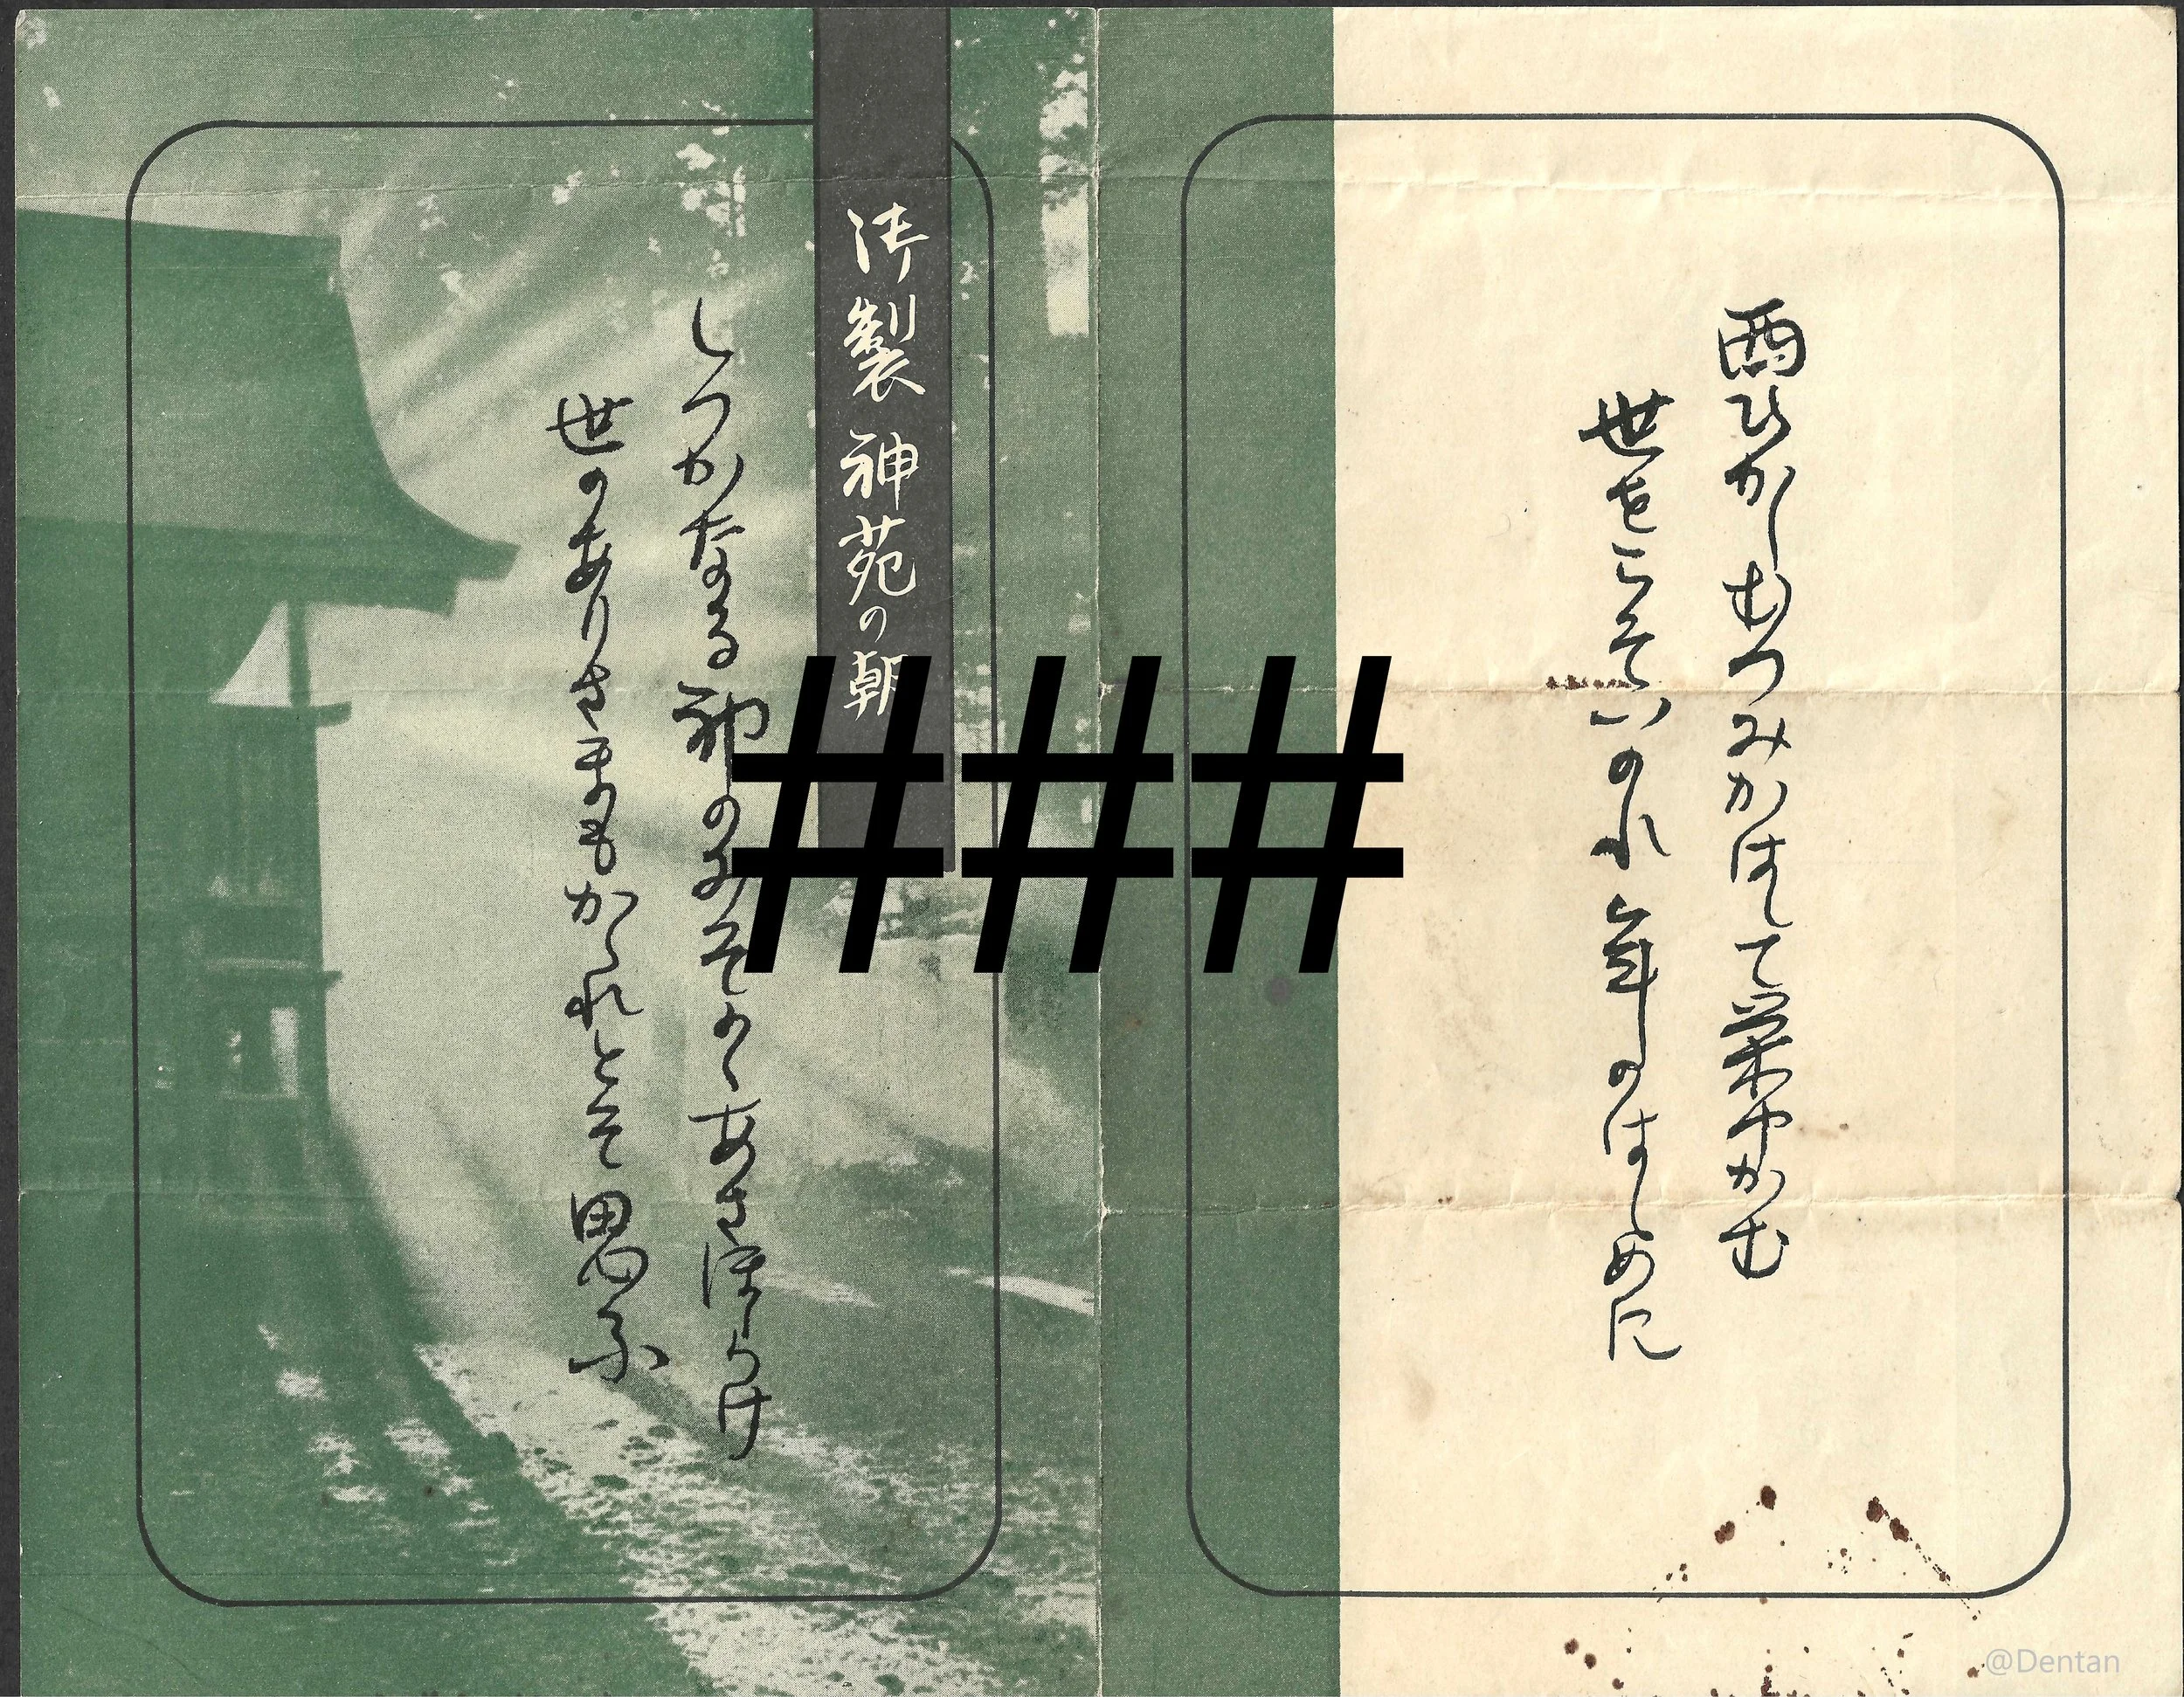 西ひかしむつみかはして栄ゆかむ
世をこそいのれ年のはしめに
御製 神苑の朝
しつかなる神のみそのゝあさほらけ
世のありさまもかゝれとそ思ふ
###
@Dentan